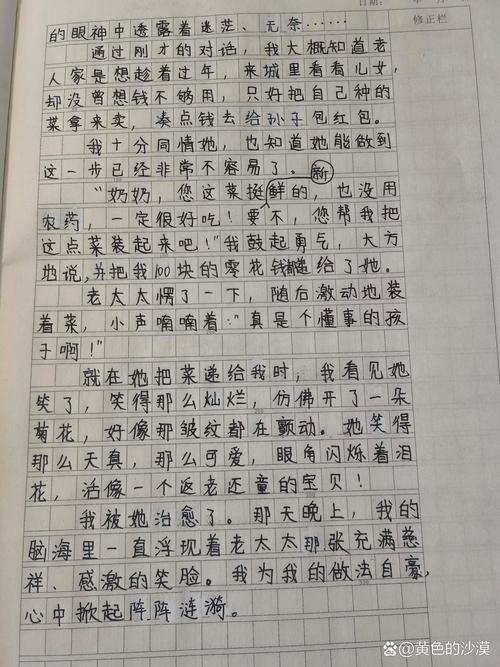 日期： 年 月
修正栏
的眼神中透露着迷茫、无奈……
通过刚才的对话，我大概知道老
人家是想趁着过年，来城里看看儿女，
却没曾想钱不够用，只好把自己种的
菜拿来卖，凑点钱去给孙子包红包。
我十分同情她，也知道她能做到
这一步已经非常不容易了。
新
“奶奶，您这菜挺鲜的，也没用
农药，一定很好吃！要不，您帮我把
这点菜装起来吧！”我鼓起勇气，大方
地说，并把我100块的零花钱都递给了她。
老太太愣了一下，随后激动地装
着菜，小声喃喃着：“真是个懂事的孩
子啊！”
就在她把菜递给我时，我看见她
笑了，笑得那么灿烂，仿佛开了一朵
菊花，好像那皱纹都在颤动。她笑得
那么天真，那么可爱，眼角闪烁着泪
花，活像一个返老还童的宝贝！
我被她治愈了。那天晚上，我的
脑海里一直浮现着老太太那张充满慈
祥、感激的笑脸。我为我的做法自豪，
心中掀起阵阵涟漪。
@黄色的沙漠